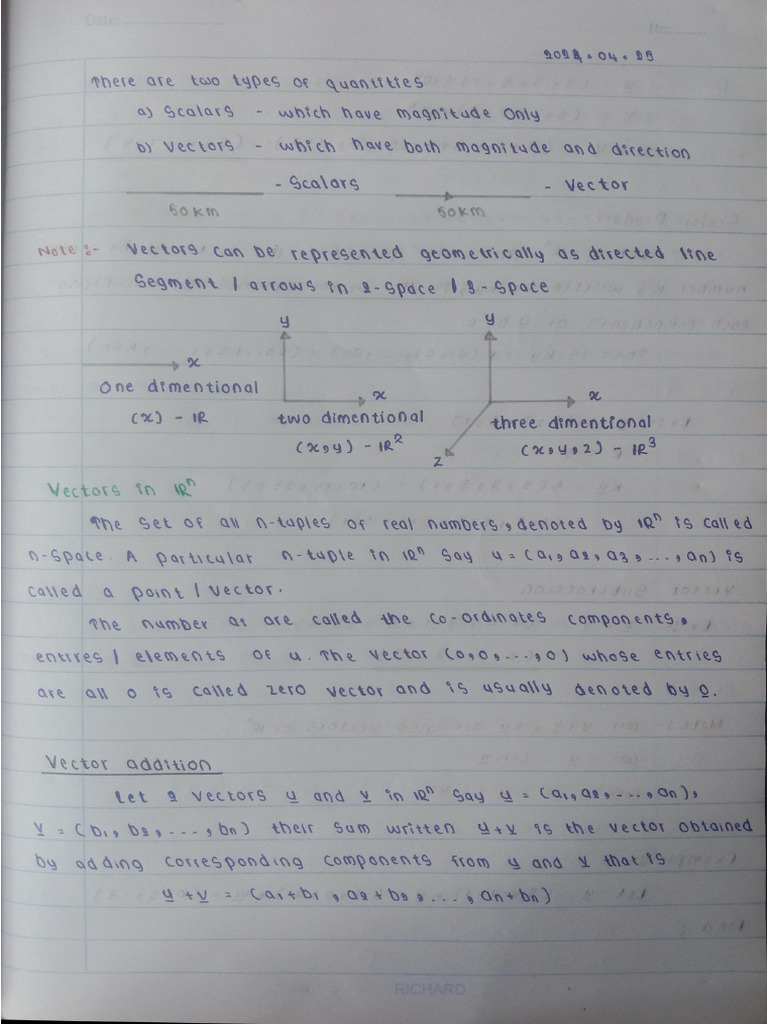 Date:
No:
2024.04.25
There are two types of quantities
a) Scalars - which have magnitude only
b) Vectors - which have both magnitude and direction
- Scalars - Vector
50km 50km
Note :- Vectors can be represented geometrically as directed line
Segment / arrows in 2-space / 3-space
y y
x
One dimentional x x
(x) - ℝ two dimentional three dimentional
(x,y) - ℝ² (x,y,z) - ℝ³
z
Vectors in ℝⁿ
The set of all n-tuples of real numbers, denoted by ℝⁿ is called
n-space. A particular n-tuple in ℝⁿ say u = (a₁, a₂, a₃, ..., aₙ) is
called a point / vector.
The number ai are called the co-ordinates components,
entires / elements of u. The vector (0,0,...,0) whose entries
are all 0 is called zero vector and is usually denoted by 0̲.
Vector addition
Let 2 vectors u̲ and v̲ in ℝⁿ say u̲ = (a₁, a₂, ..., aₙ),
v̲ = (b₁, b₂, ..., bₙ) their sum written u̲+v̲ is the vector obtained
by adding corresponding components from u̲ and v̲ that is
u̲ + v̲ = (a₁+b₁, a₂+b₂, ..., aₙ+bₙ)
RICHARD